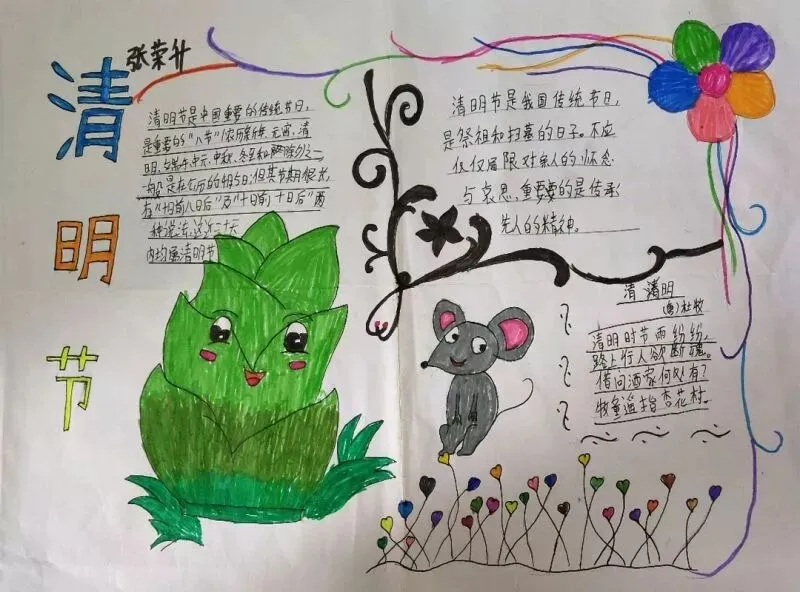 清
明
节
张荣升
清明节是中国重要的传统节日,
是重要的"八节"(农历
元宵、清
明、
中元、中秋、冬至和
除夕)之一
是在公历的4月5日,但其节期很长,
有"十日前八日后"及"十日前十日后"两
种说法,这近二十天
内均属清明节
清明节是我国传统节日,
是祭祖和扫墓的日子。不应
仅仅局限对亲人的怀念
与哀思,重要的是传承
先人的精神。
清 清明
杜牧
清明时节雨纷纷,
路上行人欲断魂。
借问酒家何处有?
牧童遥指杏花村。